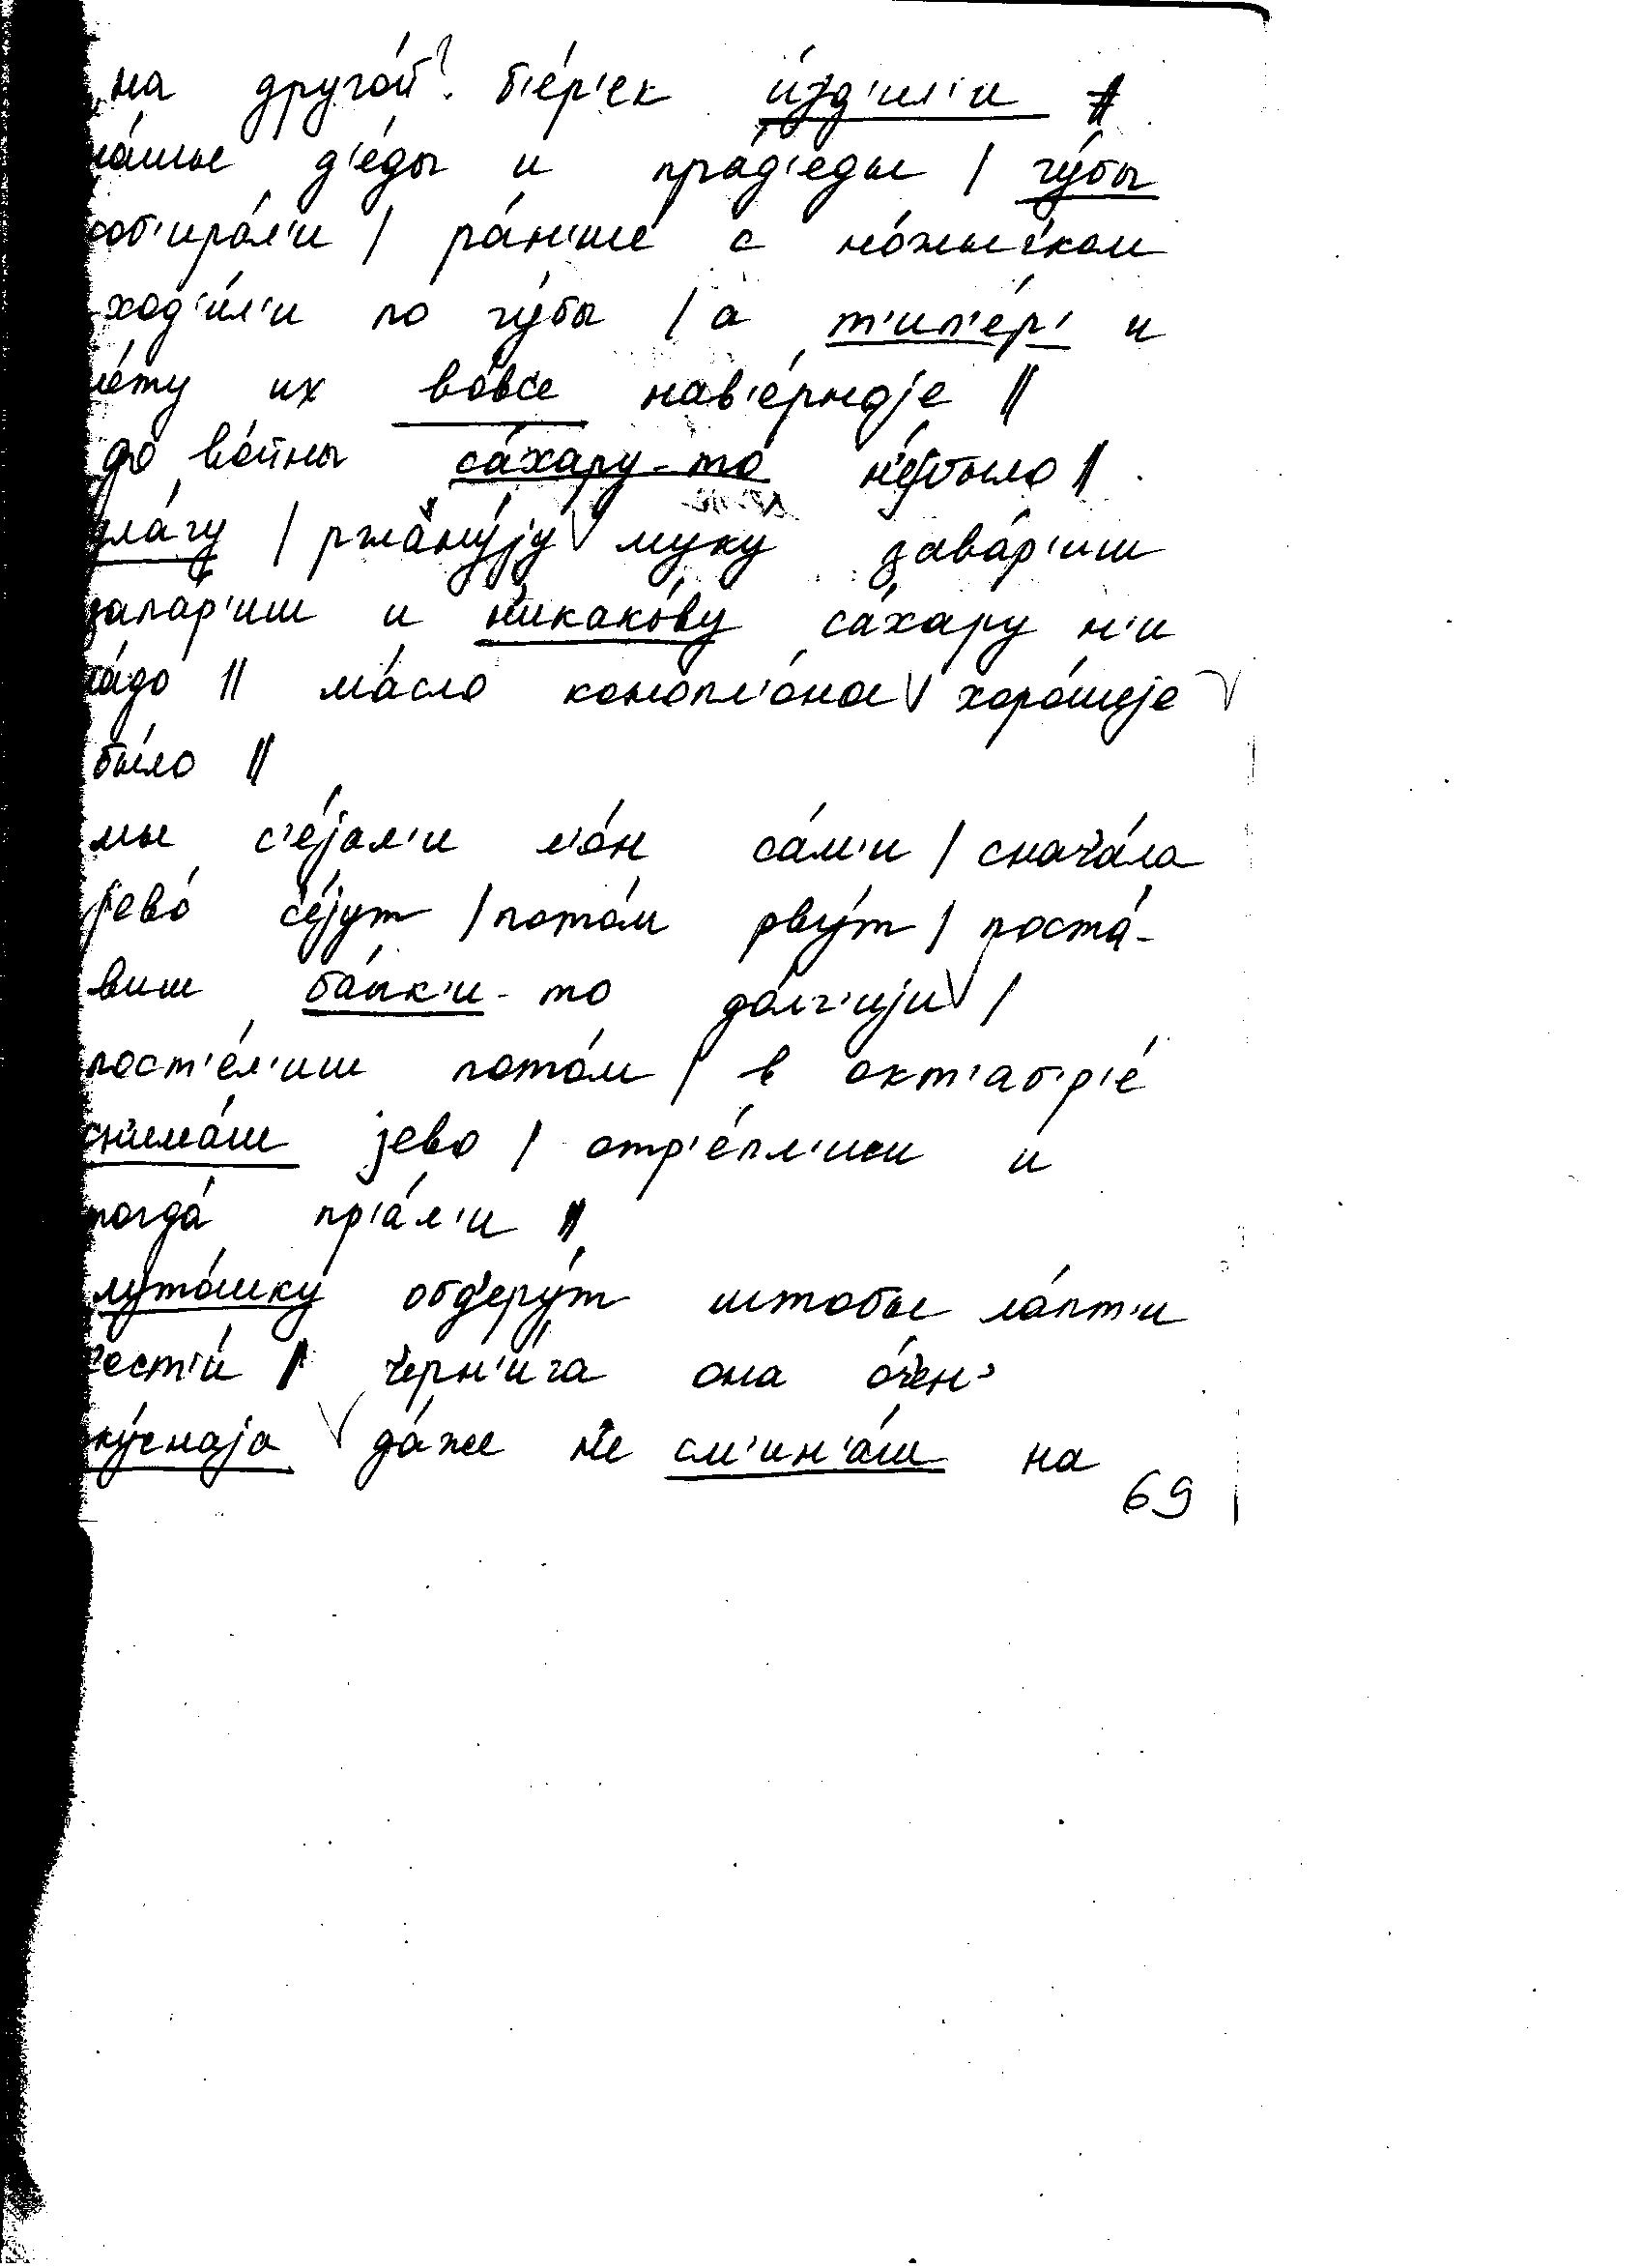 на друго́й б'е́р'ек и́зд'ил'и //
на́шые д'е́ды и пра́д'еды / гу́бы
соб'ира́л'и / ра́н'ше с но́жыч'ком
ход'и́л'и по гу́бы / а т'ип'е́р' и
не́ту их во́вс'е нав'е́рноjе //
до во́йны са́хару-то н'е́было //
ула́гу / ржану́jу муку зава́р'иш
запа́р'иш и н'икако́ву са́хару н'и
на́до // ма́сло конопл'о́но хоро́шеjе
бы́ло //
мы с'е́jал'и л'о́н са́м'и / снача́ла
jево́ с'е́jут / пото́м рву́т / поста́-
виш ба́пк'и-то до́лг'иjи /
пост'е́л'иш пото́м / в окт'абр'е́
сн'има́ш jево / отр'е́пл'иш и
тогда́ пр'а́л'и //
луто́шку обд'еру́т штобы ла́пт'и
пест'и́ // ч'ерн'и́га она о́ч'ен'
ку́снаjа да́же н'е см'ин'а́ш на
69